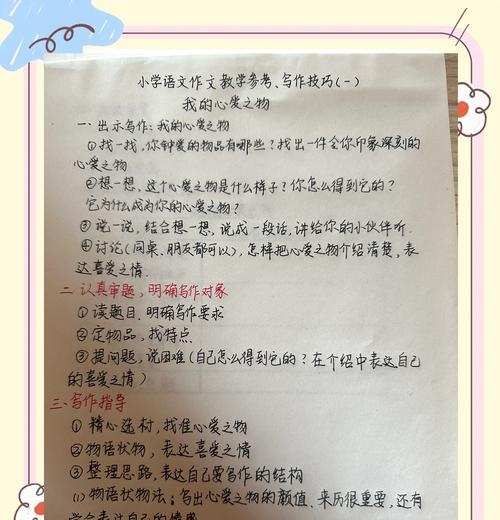 小学语文作文教学参考、写作技巧(一)
我的心爱之物
一、出示写作:我的心爱之物
①找一找,你钟爱的物品有哪些?找出一件令你印象深刻的
心爱之物
②想一想,这个心爱之物是什么样子?你怎么得到它的?
它为什么成为你的心爱之物?
③说一说,结合想一想,说成一段话,讲给你的小伙伴听.
④讨论(同桌、朋友都可以),怎样把心爱之物介绍清楚,表
达喜爱之情.
二、认真审题,明确写作对象
①读题目、明确写作要求
②定物品,找特点
③提问题,说困难(自己怎么得到它的?在介绍中表达自己
的喜爱之情)
三、写作指导
①精心选材,找准心爱之物
②物语状物,表达喜爱之情
③整理思路,表达自己要写作的结构
(1)物语状物法;写出心爱之物的颜值、来历很重要,还有
学会表达自己的情感